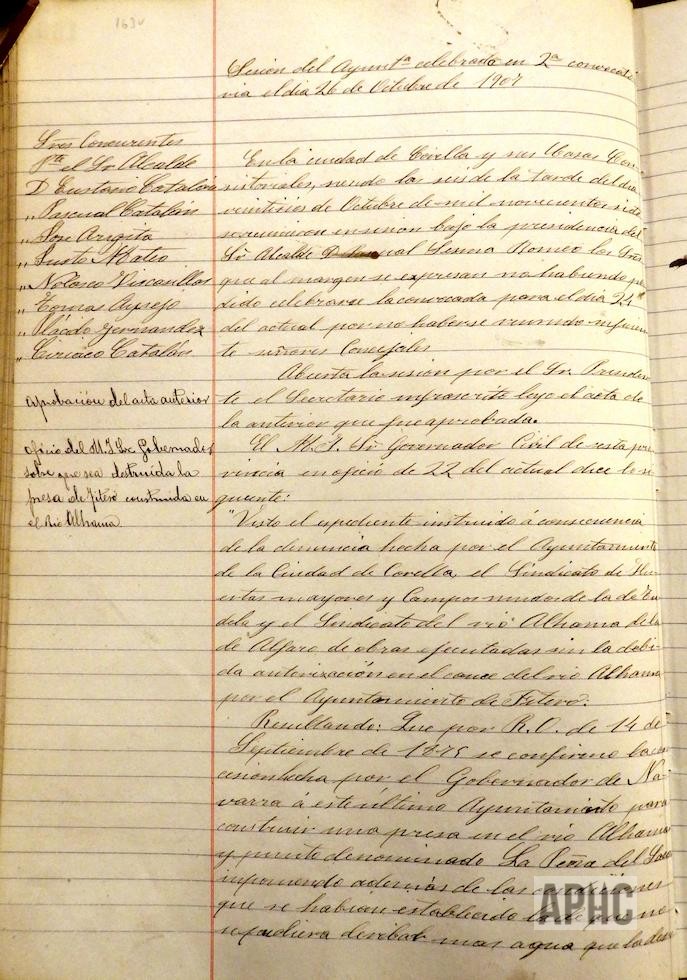 163v
Sesion del Ayuntº celebrada en 2ª convocato
ria el dia 26 de Octubre de 1907
Sres Concurentes
Pte el Sr Alcalde
D Eustasio Catalán
„ Pascual Catalán
„ Jose Argita
„ Justo Mateo
„ Nolasco Viscasillas
„ Tomas Ayensa
„ Placido Fernandez
„ Ciriaco Catalán
En la ciudad de Corella y sus Casas Con
sistoriales, siendo las seis de la tarde del dia
veintiseis de Octubre de mil novecientos siete
reunieron en sesion bajo la presidencia del
Sr Alcalde Romeo los Sres
que al margen se expresan no habiendo po
dido celebrarse la convocada para el dia 24
del actual por no haberse reunido suficien
te señores Concejales
Abierta la sesion por el Sr. Presiden
te el Secretario infrascrito leyo el acta de
la anterior que fue aprobada.
Aprobacion del acta anterior
El M. I. Sr Governador Civil de esta pro
vincia en oficio de 22 del actual dice lo si
guiente:
Oficio del M. I. Sr. Gobernador
sobre que sea destruida la
presa de Fitero construida en
el Rio Alhama
"Visto el expediente instruido á consecuencia
de la denuncia hecha por el Ayuntamiento
de la Ciudad de Corella, el Sindicato de Hu
ertas mayores y Campos unidos de la de Tu
dela y el Sindicato del rio Alhama de la
de Alfaro de obras ejecutadas sin la debi
da autorizacion en el cauce del rio Alhama
por el Ayuntamiento de Fitero:
Resultando: Que por R. O. de 14 de
Septiembre de 1875 se confirmo la con
cesion hecha por el Gobernador de Na
varra á este último Ayuntamiento para
construir una presa en el rio Alhama
y punto denominado La Peña del Saco
imponiendo además de las condiciones
que se habian establecido la de que no
se pudiera derivar mas agua que la
APHC